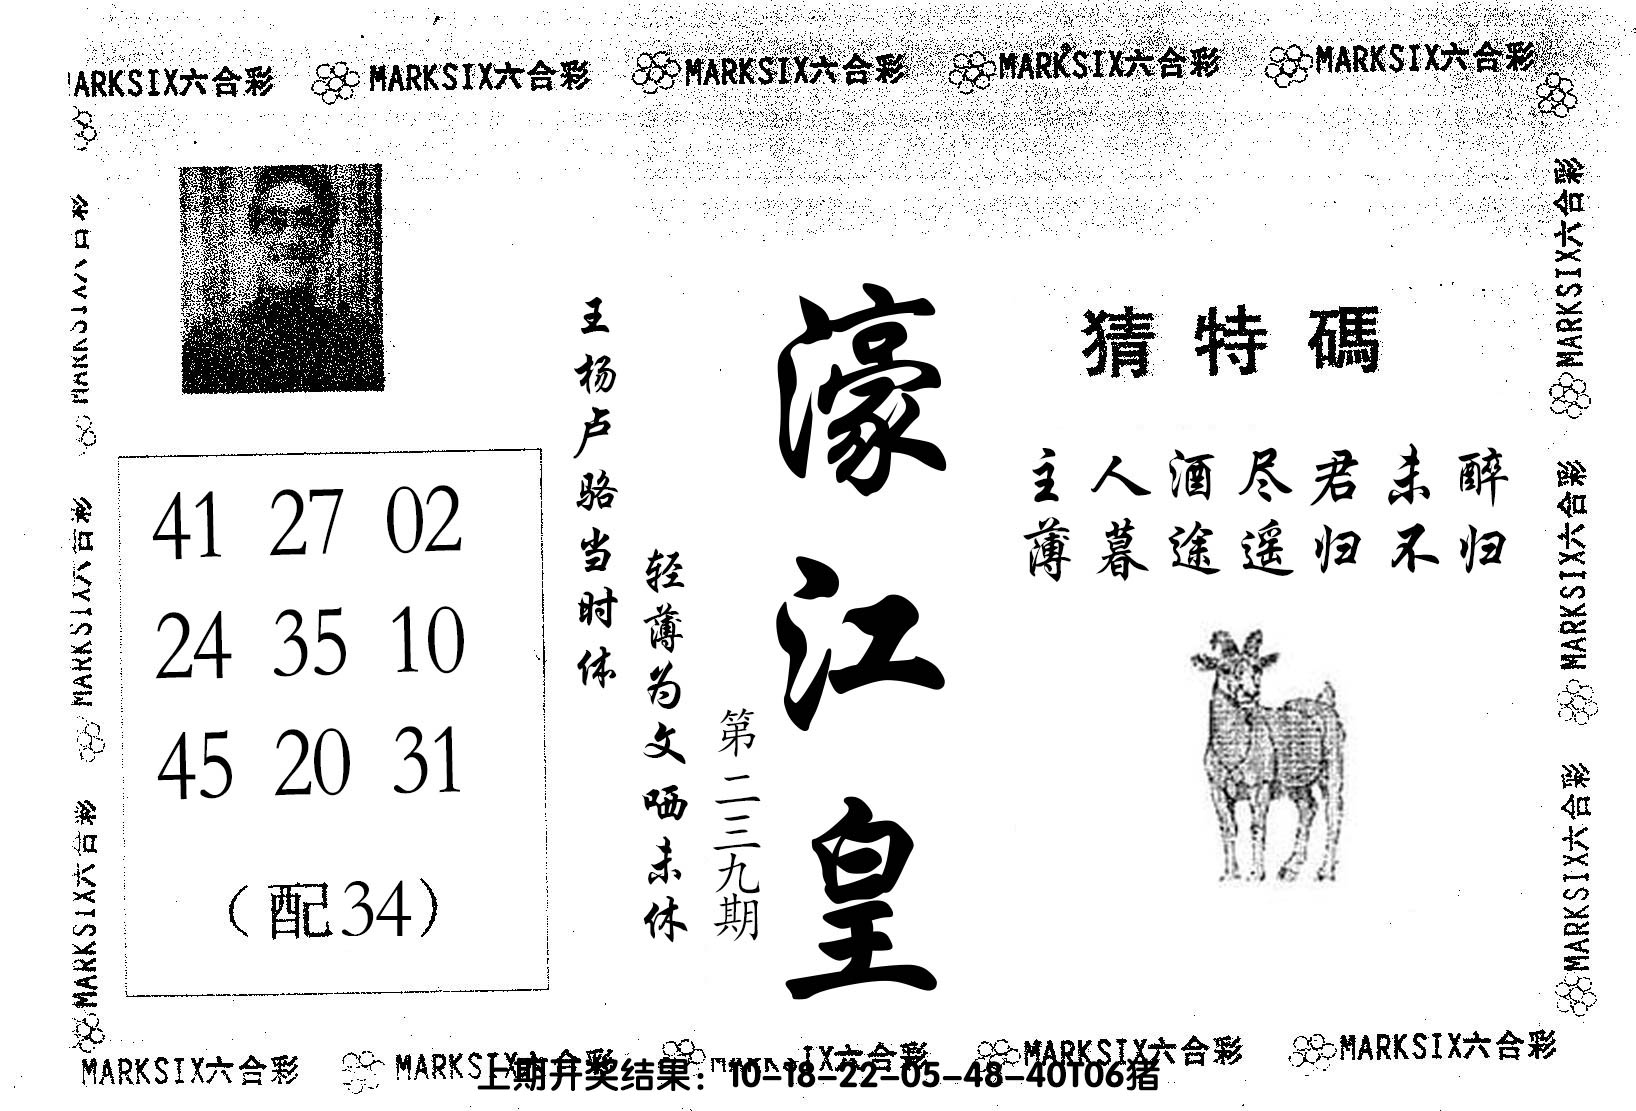 MARKSIX六合彩 MARKSIX六合彩 MARKSIX六合彩 MARKSIX六合彩 MARKSIX六合彩
猜特碼
主人酒尽君未醉
薄暮途遥归不归
濠江皇
第二三九期
王杨卢骆当时体
轻薄为文哂未休
41 27 02
24 35 10
45 20 31
（配34）
MARKSIX六合彩
MARKSIX六合彩
MARKSIX六合彩
MARKSIX六合彩
MARKSIX六合彩
MARKSIX六合彩
MARKSIX六合彩 MARKSIX六合彩 MARKSIX六合彩 MARKSIX六合彩
上期开奖结果：10-18-22-05-48-40T06猪